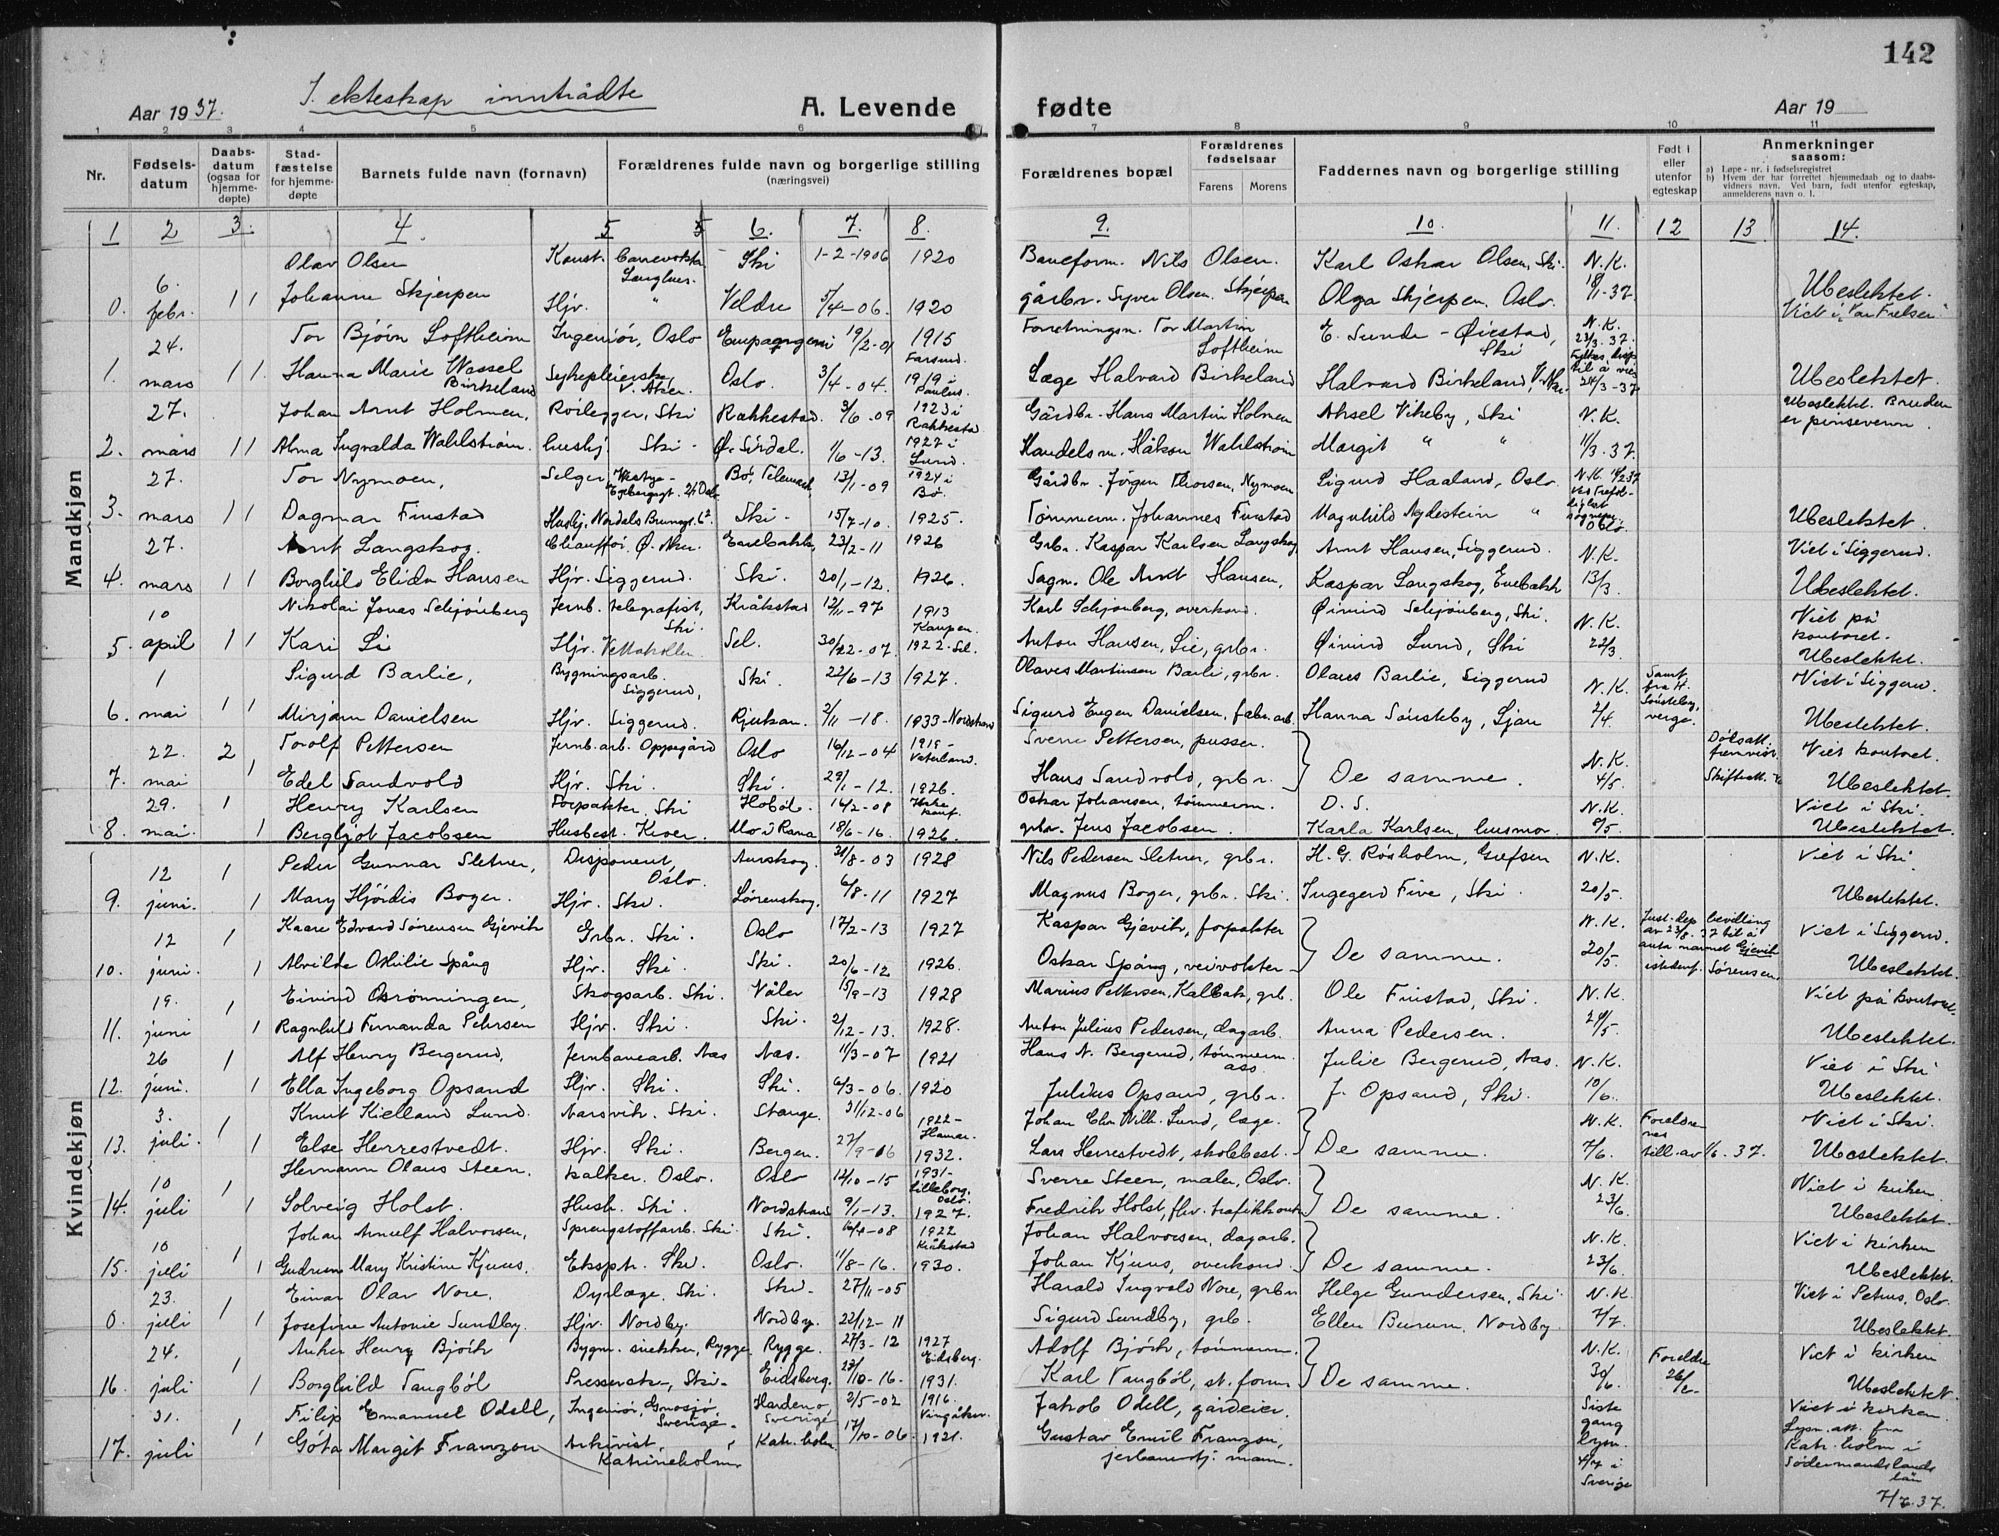 142
Aar 1937.
I. ekteskap inntrådte
A. Levende
fødte
Aar 19
1 2 3 4 5 6 7 8 9 10 11
Nr.
Fødsels-
datum
Daabs-
datum
(ogsaa for
hjemme-
døpte)
Stad-
fæstelse
for hjemme-
døpte
Barnets fulde navn (fornavn)
Forældrenes fulde navn og borgerlige stilling
(næringsvei)
Forældrenes bopæl
Forældrenes
fødselsaar
Farens Morens
Faddernes navn og borgerlige stilling
Født i
eller
utenfor
egteskap
Anmerkninger
saasom:
a) Løpe-nr. i fødselsregistret
b) Hvem der har forrettet hjemmedaab og to daabs-
vidners navn. Ved barn, født utenfor egteskap,
anmelderens navn o. l.
Mandkjøn
Kvindekjøn
1 2 3. 4. 5 6. 7. 8. 9. 10. 11. 12 13 14.
Olav Olsen Ski 1-2-1906 1920 Baneform. Nils Olsen. Karl Oskar Olsen, Ski. N.K.
0. 6. febr. 1 1 Johanne Skjerpen Hjv. " Veldre 5/4-06. 1920 gårbr. Syver Olsen Skjerpen Olga Skjerpen, Oslo. 37. Ubeslektet.
24. Tor Bjørn Loftheim Ingeniør, Oslo 19/2-01 1915 Forretningsm. Tor Martin Loftheim E. Sunde - Ørestad, Ski N.K. 23/3-37.
1. mars 1 1 Hanna Marie Wessel Birkeland Sykepleierske V. Aker. Oslo. 3/4-04. 1919 i Læge Halvard Birkeland Halvard Birkeland, 24/3-37 Ubeslektet.
27. Johan Arnt Holmen, Rørlegger, Ski Rakkestad. 3/6-09 1923 i Rakkestad Gårdbr. Hans Martin Holmen Aksel Vikeby, Ski N.K. Ubeslektet. Bruden er pinsevenn.
2. mars 1 1 Alma Ingvalda Wahlstrøm. Ski. 1/6-13. 1927 i Lund. Handelsm. Håkon Wahlstrøm Margit " " 11/3-37.
27. Tor Nymoen, Selger, Bø, Telemark 13/1-09 1924 i Bø. Gårdbr. Jørgen Thorsen Nymoen Sigurd Haaland, Oslo N.K.
3. mars 1 1 Dagmar Finstad Ski. 15/7-10. 1925. Tømmerm. Johannes Finstad Magnhild Nydestein " Oslo. Ubeslektet.
27. Arnt Langskog. Chauffør, Ø. Aker. Enebakk 23/2-11 1926 Grbr. Kaspar Karlsen Langskog Arnt Hansen, Siggerud. N.K. Viet i Siggerud.
4. mars 1 1 Borghild Elida Hansen Hjv. Siggerud. Ski. 20/1-12. 1926. Sagm. Ole Arnt Hansen, Kaspar Langskog, Enebakk 13/3. Ubeslektet.
10 Nikolai Jonas Schjønberg Jernb. telegrafist, Ski. Kråkstad 12/11-97 1913 Karl Schjønberg, overkond. Øivind Schjønberg, Ski. N.K. Viet på kontoret.
5. april 1 1 Kari Li Hjv. Vettakollen Sel. 1922 Sel. Anton Hansen Lie, grbr. Øivind Lund, Ski 22/3. Ubeslektet.
1 Sigurd Barlie, Bygningsarb. Siggerud, Ski. 22/6-13 1927. Olaves Martinsen Barli, grbr. Olaus Barlie, Siggerud N.K. Samt. fra H. Sønsteby, verge. Viet i Siggerud.
6. mai 1 1 Mirjam Danielsen Hjv. Siggerud. Rjukan. 2/11-18. 1933-Nordstrand Sigurd Eugen Danielsen, fabr. arb. Hanna Sønsteby, Ljan 2/4. Ubeslektet.
22. 2 Torolf Pettersen Jernb. arb. Oppegård Oslo 16/12-04 1919- Vaterland. Sverre Pettersen, pusser. N.K. Viet kontoret.
7. mai 1 Edel Sandvold Hjv. Ski. Ski. 29/1-12. 1926. Hans Sandvold, grbr. De samme. 4/5. Ubeslektet.
29. 1 Henry Karlsen Forpakter, Ski Hobøl. 16/2-08 Oskar Johansen, tømmerm. D.S. N.K. Viet i Ski.
8. mai. 1 Bergljot Jacobsen Husbest. Kver. Mo i Rana 18/6-16. 1926. grbr. Jens Jacobsen. Karla Karlsen, husmor. 8/5 Ubeslektet.
12 1 Peder Gunnar Sletner, Disponent, Oslo. Aurskog. 31/8-03 1928 Nils Pedersen Sletner, grbr. H. G. Røsholm, Grefsen N.K. Viet i Ski
9. juni. 1 Mary Hjørdis Boger. Hjv. Ski. Lørenskog. 6/8-11 1927 Magnus Boger, grbr. Ski Ingegerd Five, Ski. 20/5. Ubeslektet.
12 1 Kaare Edvard Sørensen Gjevik Grbr. Ski. Oslo 17/2-13 1927 Kaspar Gjevik, forpakter N.K. Just.dep. bevilling av 23/8. 37 til å anta navnet Gjevik istedenf. Sørensen. Viet i Siggerud.
10. juni. 1 Alvilde Othilie Spång Hjv. Ski. Ski. 20/6-12 1926. Oskar Spång, veivokter De samme. 20/5. Ubeslektet.
19. 1 Eivind Skogsarb. Ski. Våler 15/9-13 1928 Marius Pettersen, Kalbak, grb. Ole Finstad, Ski. N.K. Viet på kontoret.
11. juni 1 Ragnhild Fernanda Petersen Hjv. Ski. Ski. 2/12-13. 1928. Anton Julius Pedersen, dagarb. Anna Pedersen. 29/5. Ubeslektet.
26 1 Alf Henry Bergerud, Jernbanearb. Aas Aas. 11/3-07 1921 Hans N. Bergerud, tømmerm. Aas. Julie Bergerud, Aas. N.K. Viet i Ski
12. juni. 1 Ella Ingeborg Opsand Hjv. Ski. Ski. 6/3-06. 1920 Julius Opsand, grbr. J. Opsand, Ski. 10/6. Ubeslektet.
3. 1 Knut Kielland Lund. Ski. Stange. 31/12-06 1922- Hamar. Johan Chr. Wilh. Lund, læge. N.K. Viet i Ski.
13. juli. 1 Else Herrestvedt. Hjv. Ski. Bergen. 27/9-06 1932. Lars Herrestvedt, skolebest. De samme. 7/6. till. av 1/6. 37. Ubeslektet.
10 1 Hermann Olaus Steen. Oslo. Oslo 12/10-15 1931- Lilleborg, Oslo. Sverre Steen, maler, Oslo. N.K. Viet i kirken
14. juli 1 Solveig Holst. Hush. Ski. Nordstrand 9/1-13. 1927. Fredrik Holst, De samme. 23/6. Ubeslektet.
10 1 Johan Arnulf Halvorsen, Sprengstoffarb. Ski. Ski. 1922 Kråkstad Johan Halvorsen, dagarb. N.K. Viet i kirken
15. juli 1 Gudrun Mary Kristine Kjuus. Eksptr. Ski. Oslo. 11/8-16. 1930. Johan Kjuus, overkond. De samme. 23/6. Ubeslektet.
23. 1 Einar Olav Nore. Dyrlæge, Ski. Ski. 27/11-05 Harald Ingvald Nore, grbr Helge Gundersen, Ski N.K. Viet i Petrus, Oslo.
0. juli 1 Josefine Antonie Sundby. Hjv. Nordby. Nordby. 22/12-11 Sigurd Sundby, grb. Ellen Burum, Nordby. 7/7. Ubeslektet.
24. 1 Anker Henry Bjørk Bygn. snekker, Rygge Rygge. 27/3-12 1927 Eidsberg. Adolf Bjørk, tømmerm. N.K. Viet i kirken
16. juli 1 Borghild Tangbøl Ski. Eidsberg. 1931. Karl Tangbøl, st. form De samme. 30/6. Ubeslektet.
31. 1 Filip Emanuel Odell, Ingeniør, Gnosjø Sverige. Sverige 2/5-02 1916. Vingåker. Jakob Odell, gårdeier. Siste gang lysn. i Sverige Viet i kirken.
17. juli 1 Göta Margit Franzon Arkivist, Katrineholm Katr. holm 17/10-06. 1921. Gustav Emil Franzon, Lysn. att. fra Katr. holm i Södermanslands län